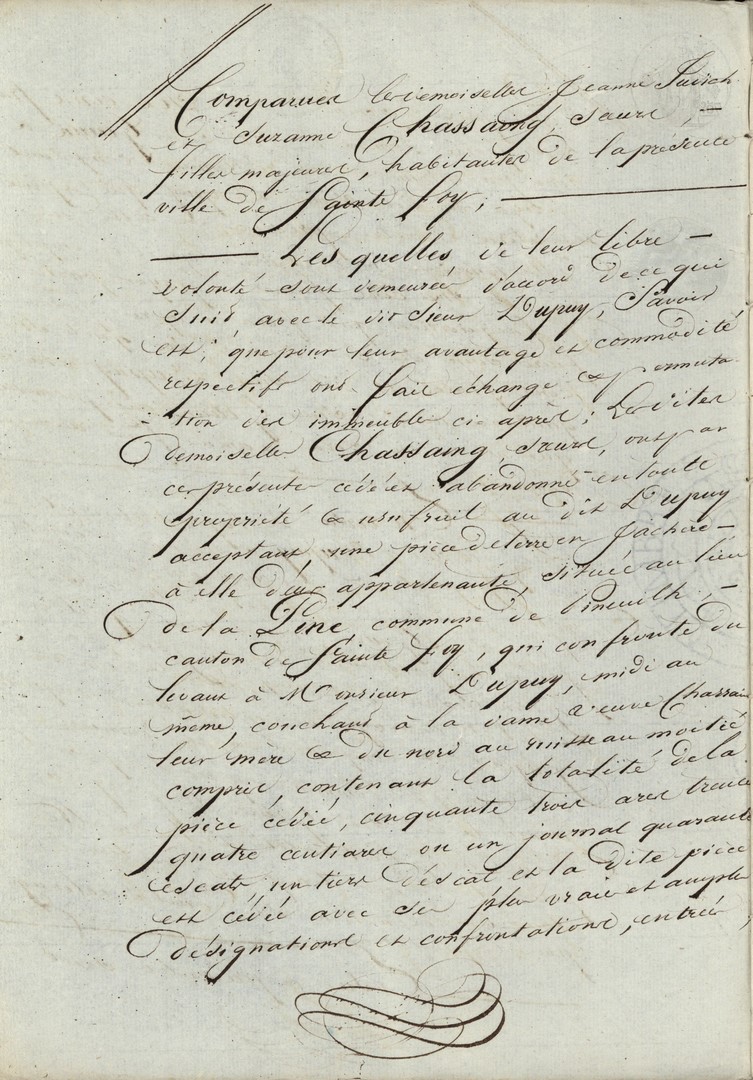 Comparues les demoiselles Jeanne Judith
et Suzanne Chassaing, sœurs, —
filles majeures, habitantes de la présente
ville de Sainte Foy; —
— Lesquelles de leur libre —
volonté sont demeurées d'accord de ce qui
suit, avec le dit sieur Dupuy, Savoir
est; que pour leur avantage et commodité
respectifs ont fait échange & permuta
-tion des immeubles ci après; Les dites
demoiselles Chassaing, sœurs, ont par
ces présentes cédé et abandonné en toute
propriété & usufruit au dit Dupuy
acceptant, une pièce de terre en Jachère —
à elles deux appartenante, située au lieu
de la Pine, commune de Pineuilh, —
canton de Sainte Foy, qui confronte du
levant à Monsieur Dupuy, midi au
même, couchant à la dame veuve Chassain
leur mère & du nord au ruisseau moitié
compris, contenant la totalité de la
pièce cédée, cinquante trois ares trente
quatre centiares ou un journal quarante
escats, un tiers d'escat et la dite pièce
est cédée avec ses plus vraies et amples
désignations et confrontations, entrées,